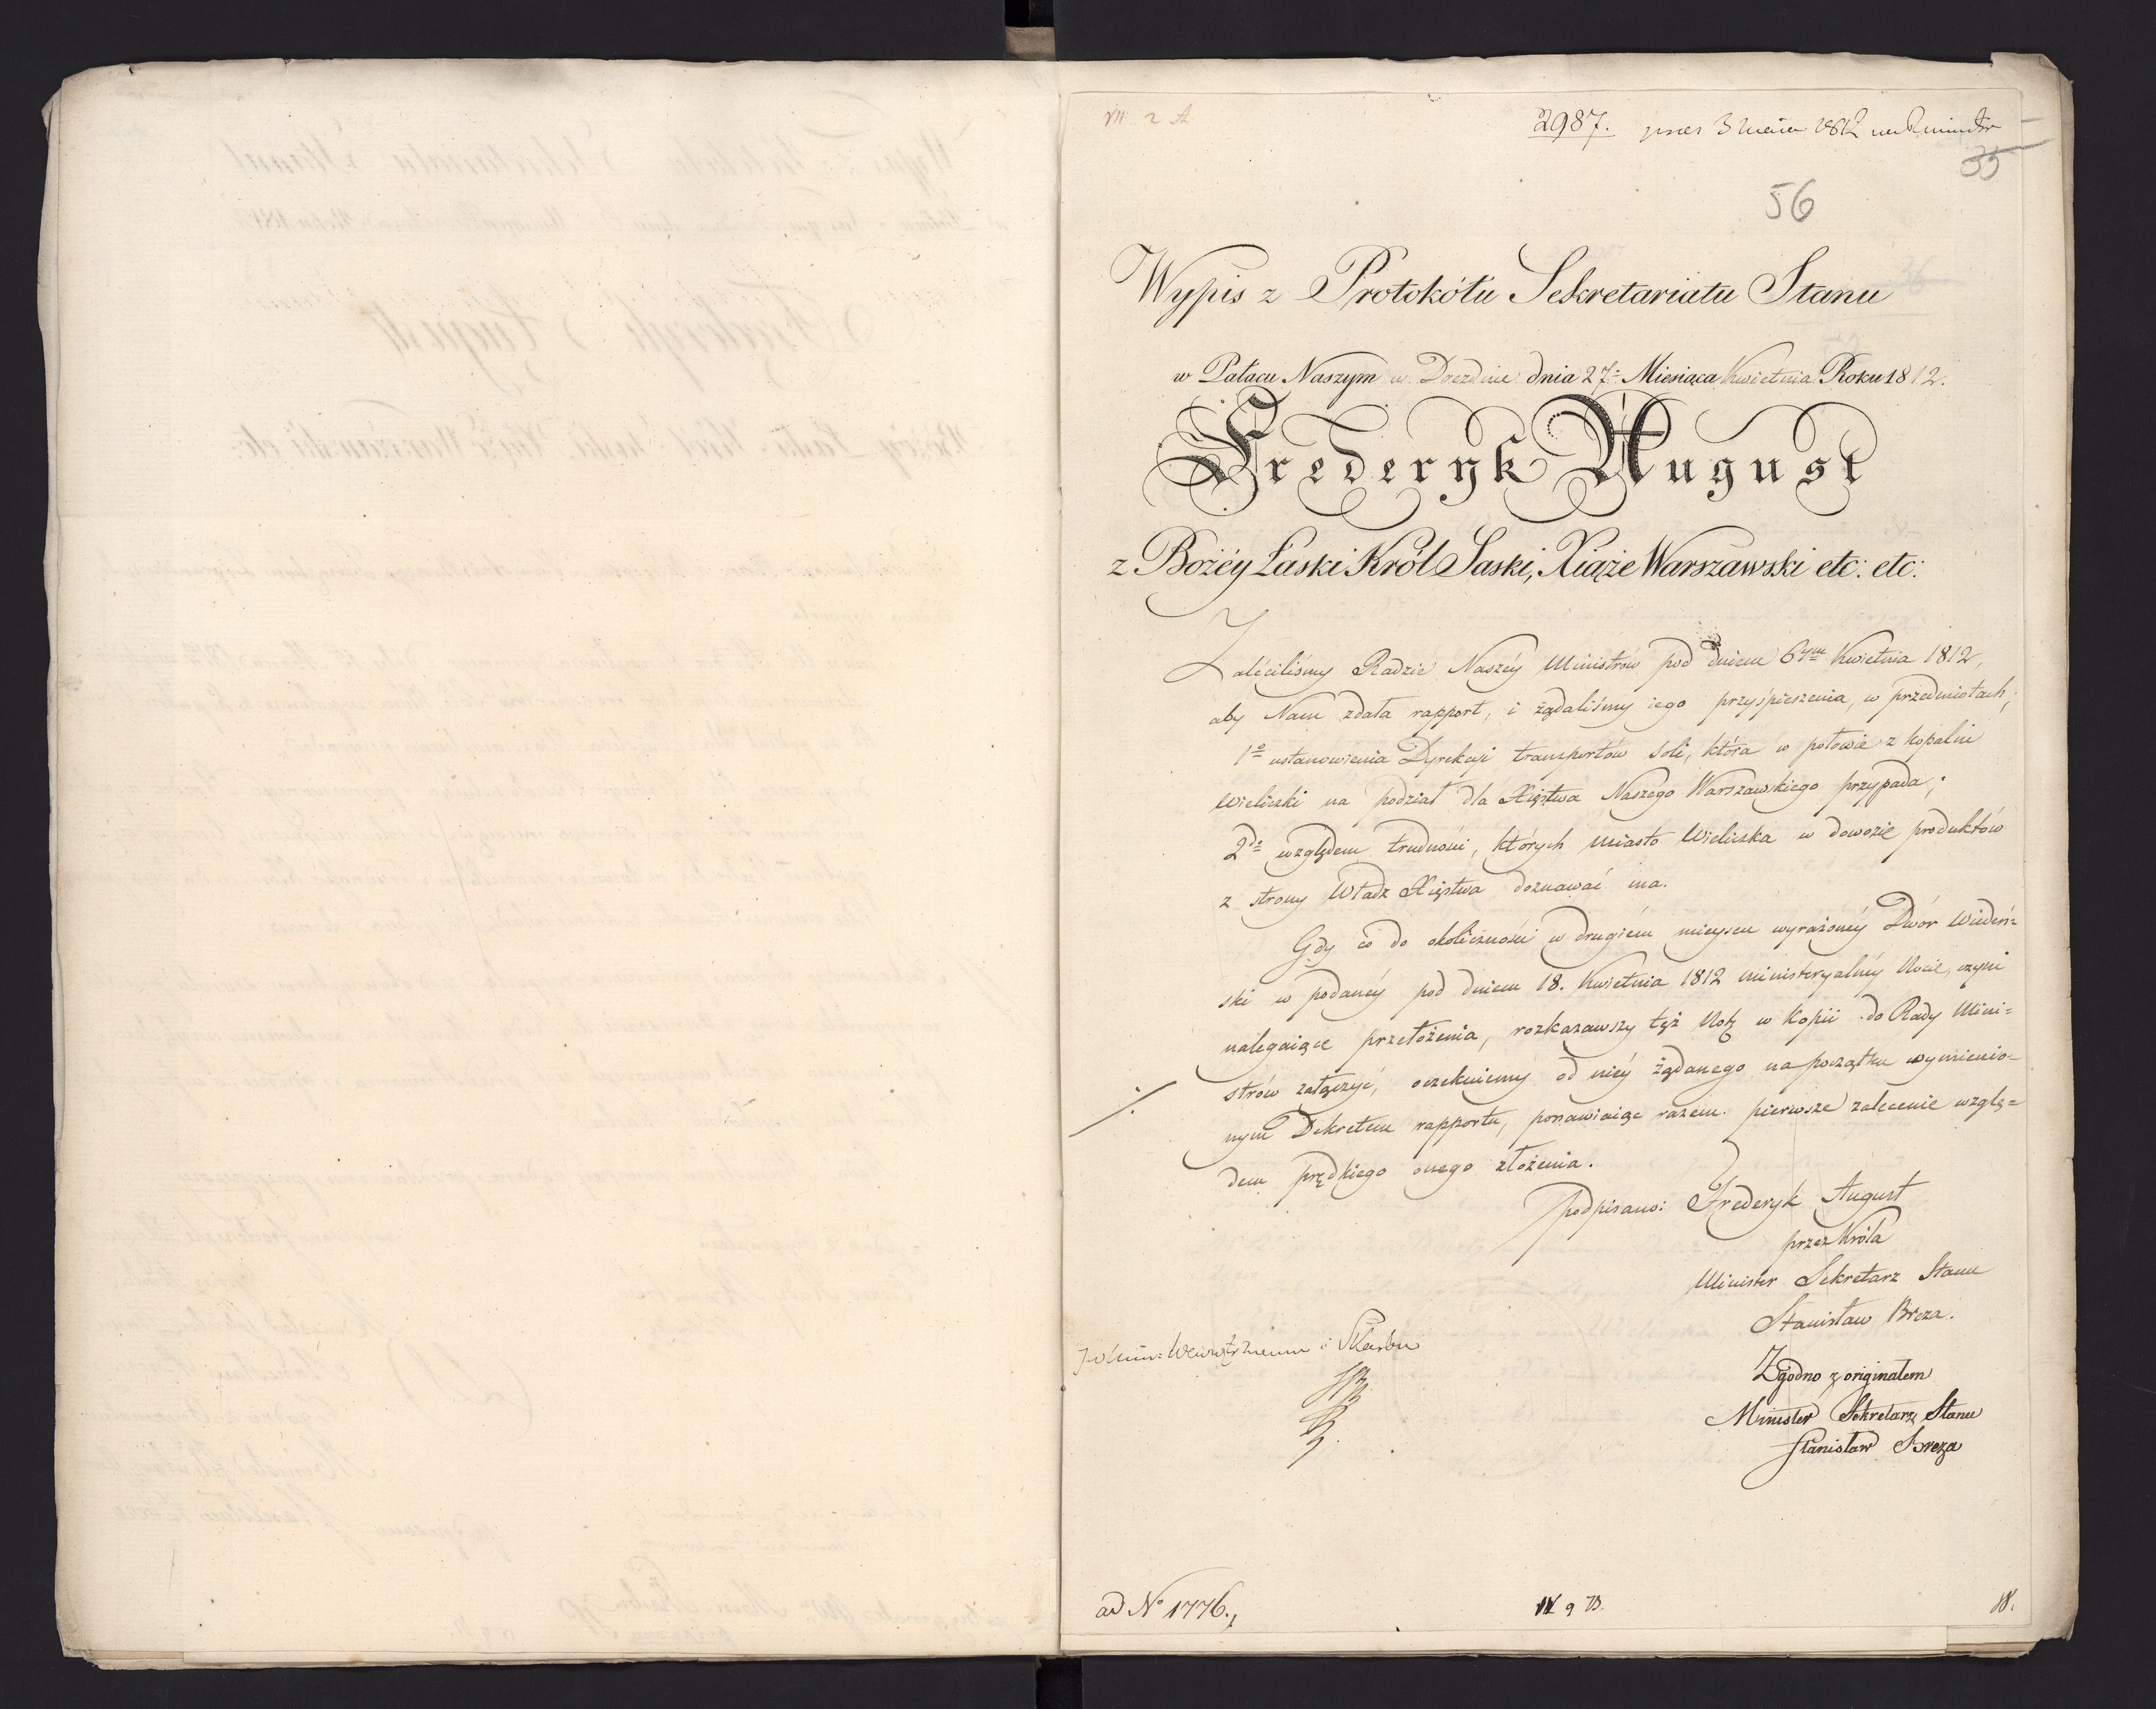 VII 2 A
2987. 3 1812
35
56
Wypis z Protokółu Sekretariatu Stanu
w Pałacu Naszym w Dreznie dnia 27. Miesiąca Kwietnia Roku 1812.
Frederyk August
z Bożéy Łaski Król Saski, Xiąże Warszawski etc: etc:
Zaleciliśmy Radzie Naszéy Ministrów pod dniem 6tym Kwietnia 1812,
aby Nam zdała rapport, i żądaliśmy iego przyśpieszenia, w przedmiotach;
1o ustanowienia Dyrekcji transportów soli, która w połowie z kopalni
Wieliczki na podział dla Xięstwa Naszego Warszawskiego przypada;
2do względem trudności, których miasto Wieliczka w dowozie produktów
z strony Władz Xięstwa doznawać ma.
Gdy co do okoliczności w drugiém mieyscu wyrażonéy Dwór Wiedeń=
ski w podanéy pod dniem 18. Kwietnia 1812 ministeryalnéy Nocie, czyni
nalegaiące przełożenia, rozkazawszy tęż Notę w Kopii do Rady Mini=
strów załączyć, oczekuiemy od niéy żądanego na początku wymienio=
nym Dekretem rapportu, ponawiaiąc razem pierwsze zalecenie wzglę=
dem prędkiego onego złożenia.
podpisano: Frederyk August
przez Króla
Minister Sekretarz Stanu
Stanisław Breza.
Wewnętrznemu i Skarbu
Zgodno z originałem
Minister Sekretarz Stanu
Stanisław Breza
ad No 1776.,
IV 9 B.
18.